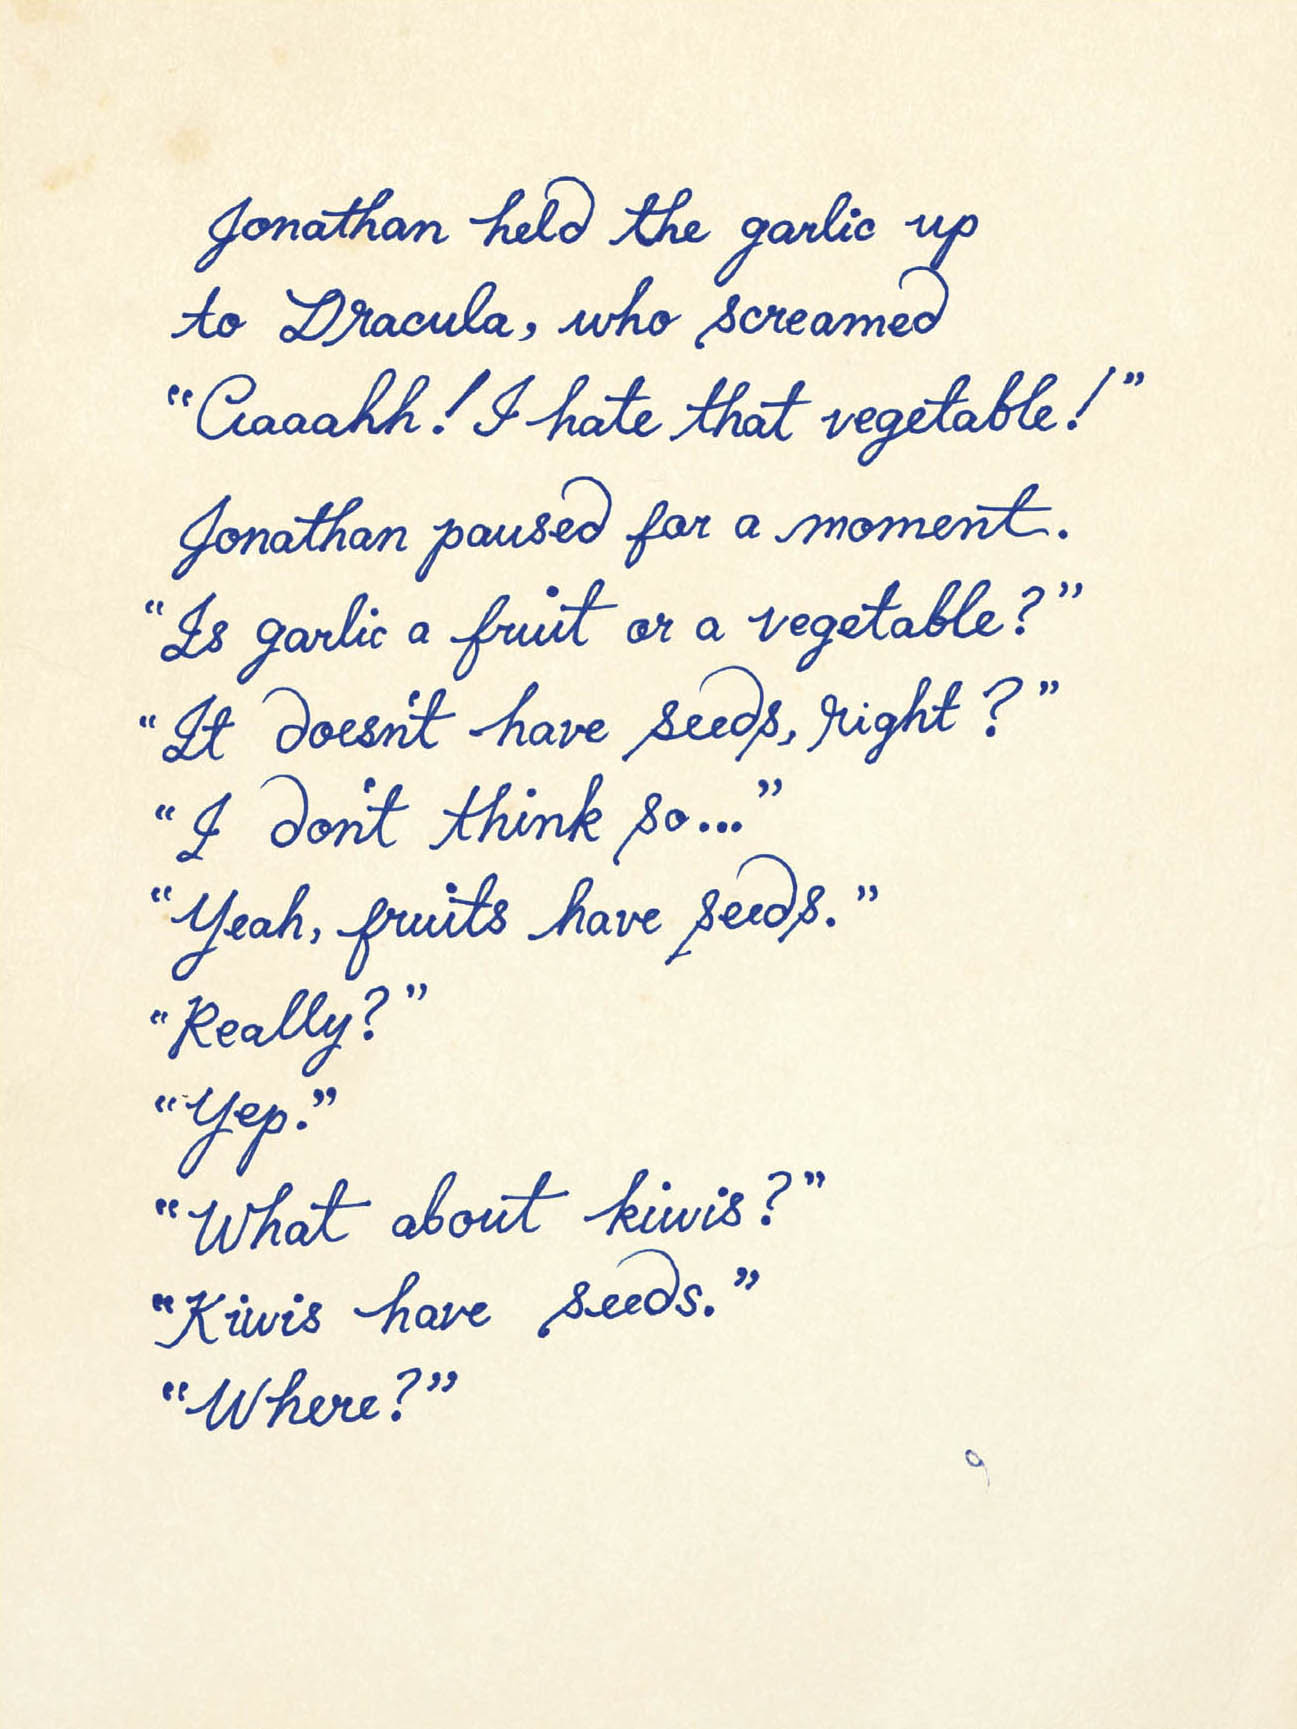 Jonathan held the garlic up
to Dracula, who screamed
“Aaaahh! I hate that vegetable!”
Jonathan paused for a moment.
“Is garlic a fruit or a vegetable?”
“It doesn't have seeds, right?”
“I don't think so...”
“Yeah, fruits have seeds.”
“Really?”
“Yep.”
“What about kiwis?”
“Kiwis have seeds.”
“Where?”
9